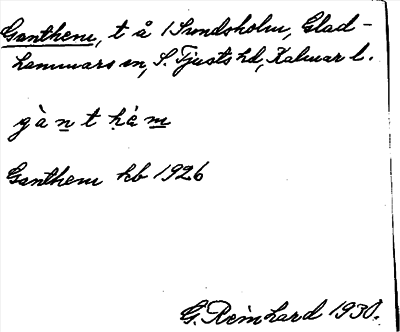 Ganthem, t å 1 Sundsholm, Glad-
hammars sn, S. Tjusts hd, Kalmar l.
gàn t hém
Ganthem kb 1926
G. Reinhard 1930.